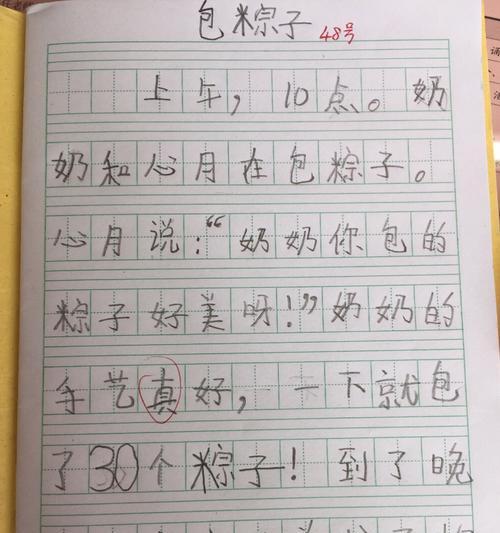 包粽子
48号
上午，10点。奶
奶和心月在包粽子。
心月说：“奶奶你包的
粽子好美呀！”奶奶的
手艺真好，一下就包
了30个粽子！到了晚